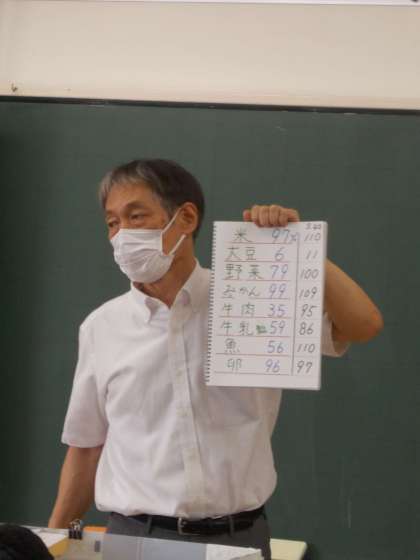 S.40
米 97% 110
大豆 6 11
野菜 79 100
みかん 99 109
牛肉 35 95
牛乳 59 86
魚 56 110
卵 96 97